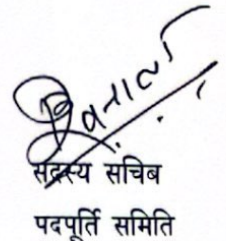 सदस्य सचिब
पदपूर्ति समिति